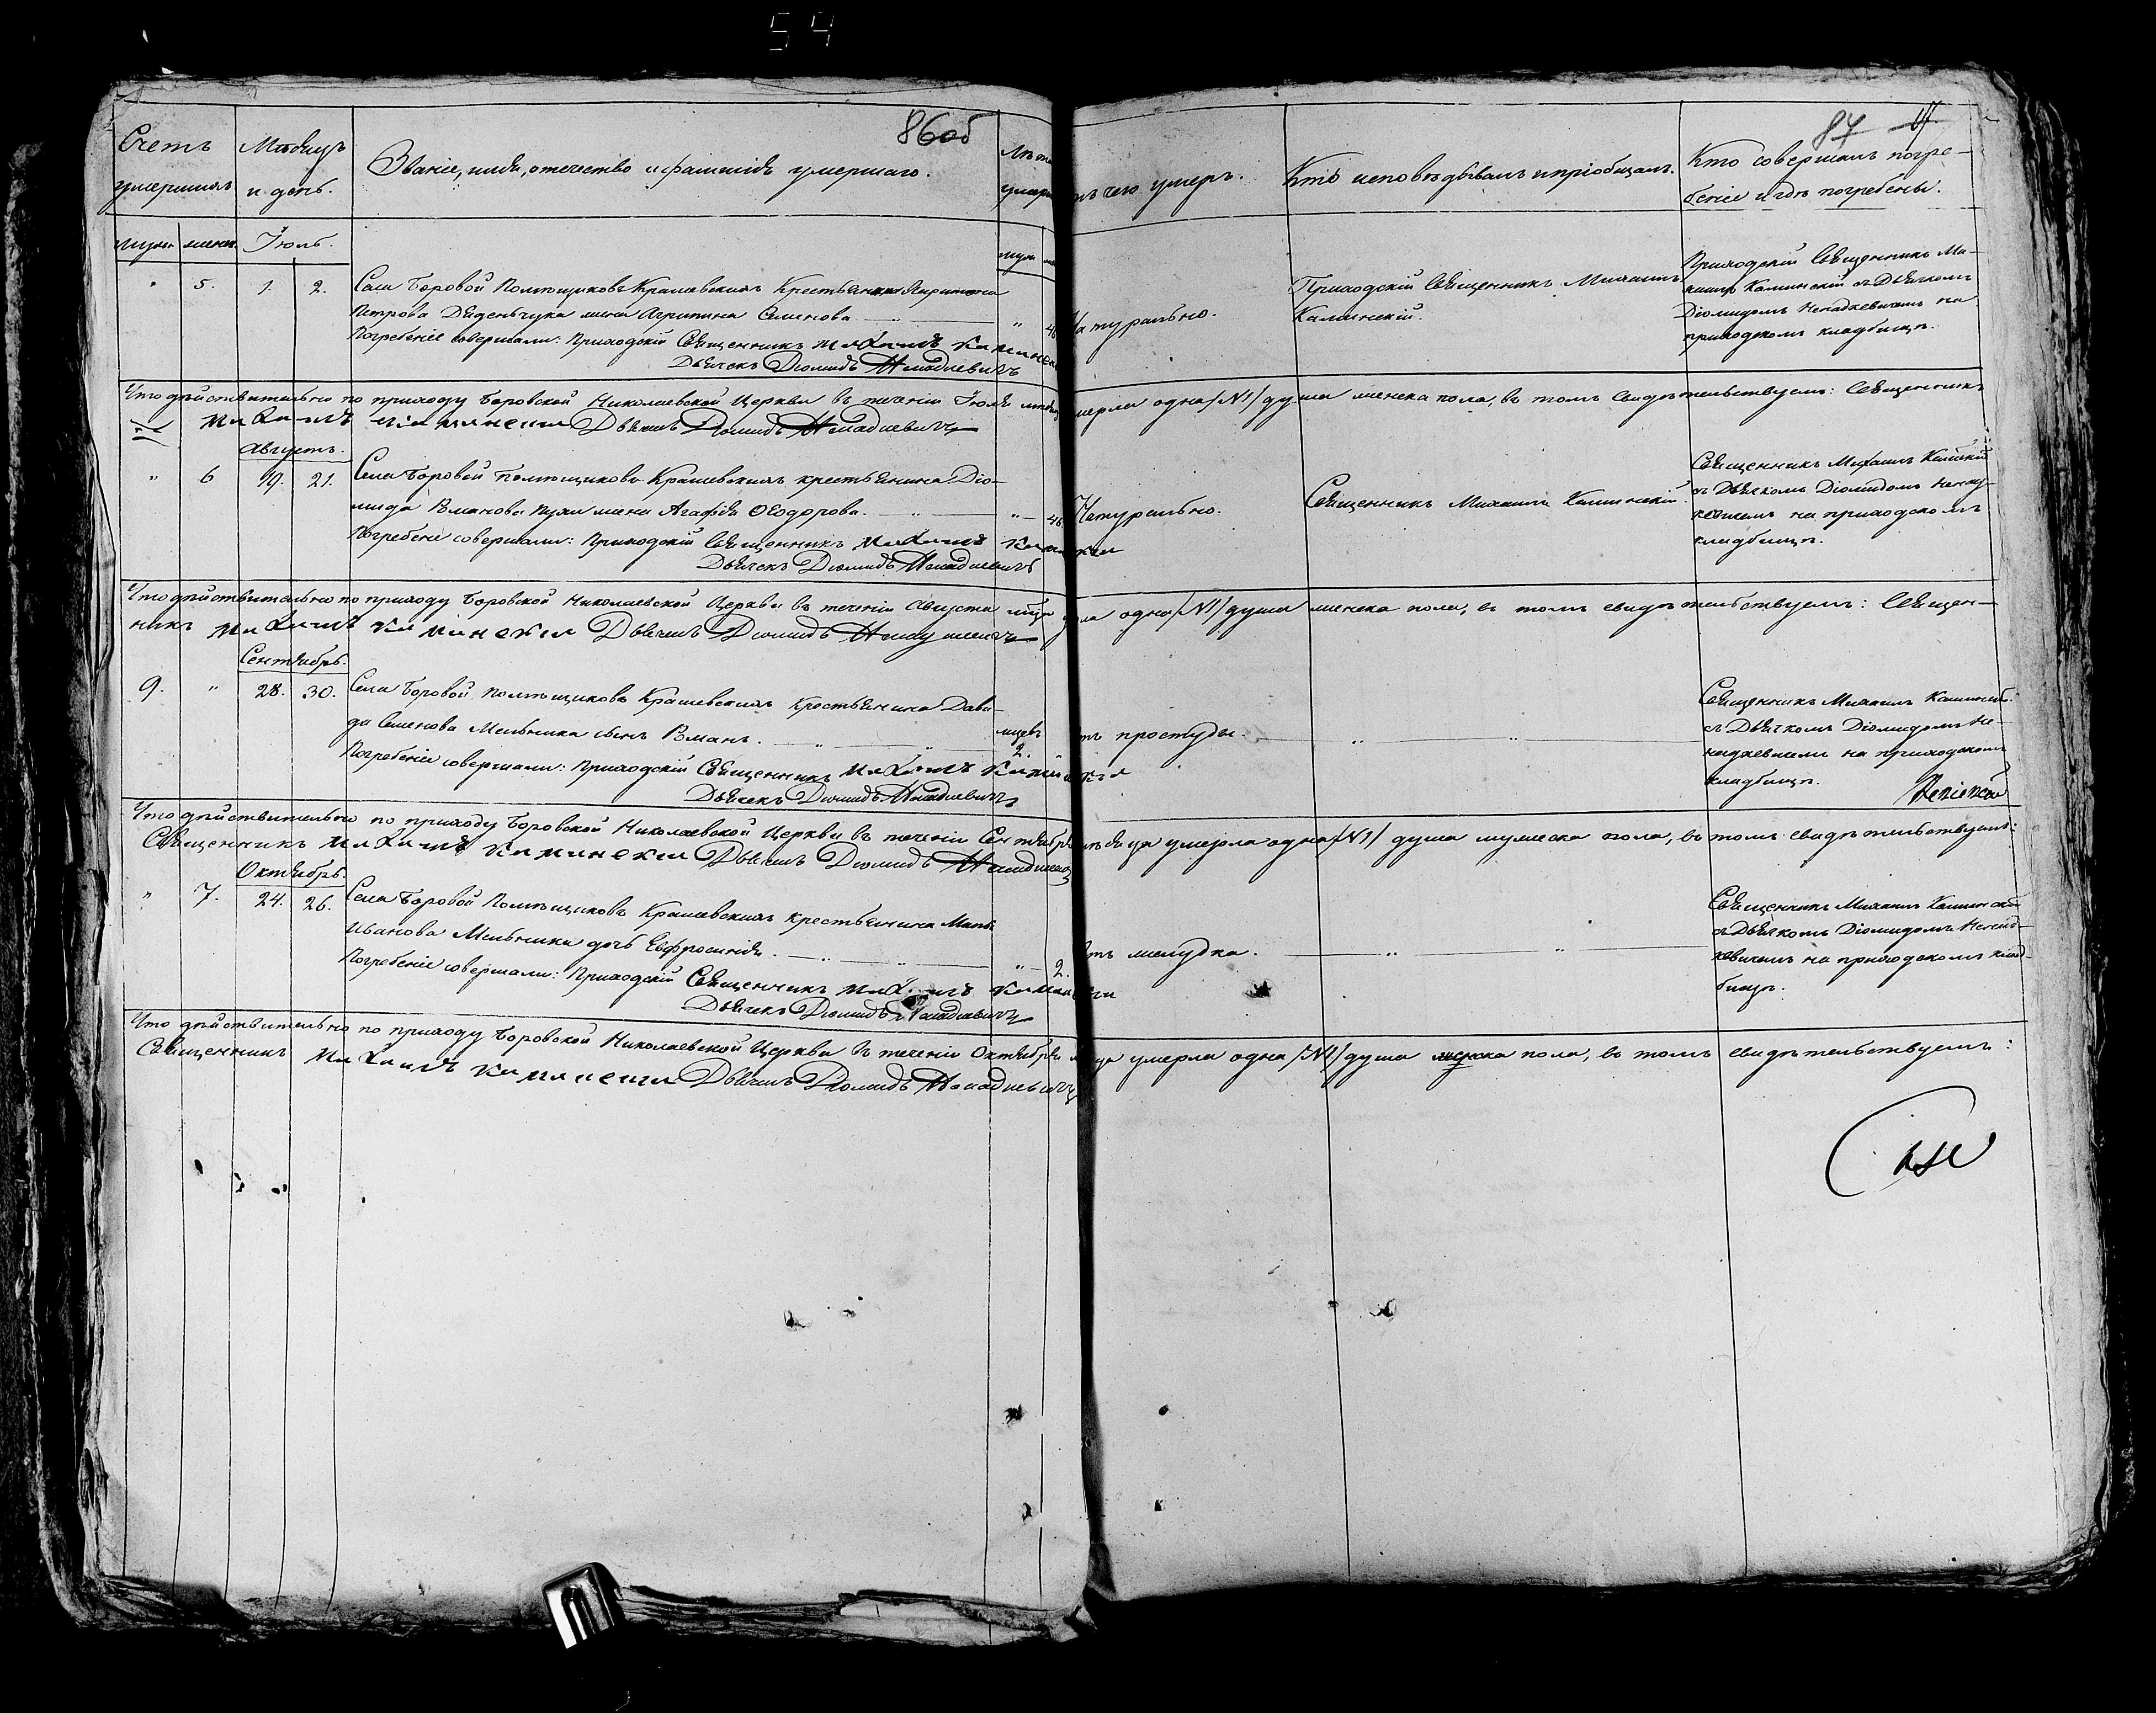 54
86 об
87
Счетъ умершихъ
Мѣсяцъ и день.
Званіе, имя, отечество и фамилія умершаго.
Лѣта умерш
тъ чего умеръ.
Кто исповѣдывалъ и пріобщалъ.
Кто совершалъ погре-
беніе и гдѣ погребены.
муж. женс. Іюль.
" 5. 1. 2.
Села Боровой Помѣщиковъ Крашевскихъ Крестьянина
Петрова Дяденьчука жена Агрипина Семенова. " 46
Погребеніе совершали: Приходскій Священникъ Михаилъ Каминскі
Дьячекъ Діомидъ Ненадкевичъ
Натурально.
Приходскій Священникъ Михаилъ
Каминскій.
Приходскій Священникъ Ми-
хаилъ Каминскій съ Дьячкомъ
Діомидомъ Ненадкевичемъ на
приходскомъ кладбищѣ.
Что дѣйствительно по приходу Боровской Николаевской Церкви въ теченіи Іюля мѣсяц мерла одна /№1/ душа женска пола, въ томъ свидѣтельствуемъ: Священникъ
Михаилъ Каминскій Дьячекъ Діомидъ Ненадкевичъ
Августъ.
" 6 19. 21.
Села Боровой Помѣщиковъ Крашевскихъ крестьянина Діо-
мида Романова жена Агафія Ѳеодорова. " 46
Погребеніе совершали: Приходскій Священникъ Михаилъ Каминскій
Дьячекъ Діомидъ Ненадкевичъ
Натурально.
Священникъ Михаилъ Каминскій
Священникъ Михаилъ Каминскій
съ Дьячкомъ Діомидомъ Ненад-
кевичемъ на приходскомъ
кладбищѣ.
Что дѣйствительно по приходу Боровской Николаевской Церкви въ теченіи Августа мѣсяца ла одна /№1/ душа женска пола, въ томъ свидѣтельствуемъ: Священ-
никъ Михаилъ Каминскій Дьячекъ Діомидъ Ненадкевичъ
Сентябрь.
9. " 28. 30.
Села Боровой Помѣщиковъ Крашевскихъ крестьянина Дави-
да Семенова Мельника сынъ Романъ. " мцев 2.
Погребеніе совершали: Приходскій Священникъ Михаилъ Каминскій
Дьячекъ Діомидъ Ненадкевичъ
тъ простуды. " "
Священникъ Михаилъ Каминскій
съ Дьячкомъ Діомидомъ Не-
надкевичемъ на приходскомъ
кладбищѣ.
Что дѣйствительно по приходу Боровской Николаевской Церкви въ теченіи Сентября мѣсяца умерла одна /№1/ душа мужеска пола, въ томъ свидѣтельствуемъ:
Священникъ Михаилъ Каминскій Дьячекъ Діомидъ Ненадкевичъ
Октябрь.
" 7. 24. 26.
Села Боровой Помѣщиковъ Крашевскихъ крестьянина
Иванова Мельника дочь Евфросинія. " " 2.
Погребеніе совершали: Приходскій Священникъ Михаилъ Каминскій
Дьячекъ Діомидъ Ненадкевичъ
тъ желудка. " "
Священникъ Михаилъ Каминскій
съ Дьячкомъ Діомидомъ Ненад-
кевичемъ на приходскомъ клад-
бищѣ.
Что дѣйствительно по приходу Боровской Николаевской Церкви въ теченіи Октября мѣсяца умерла одна /№1/ душа женска пола, въ томъ свидѣтельствуемъ:
Священникъ Михаилъ Каминскій Дьячекъ Діомидъ Ненадкевичъ